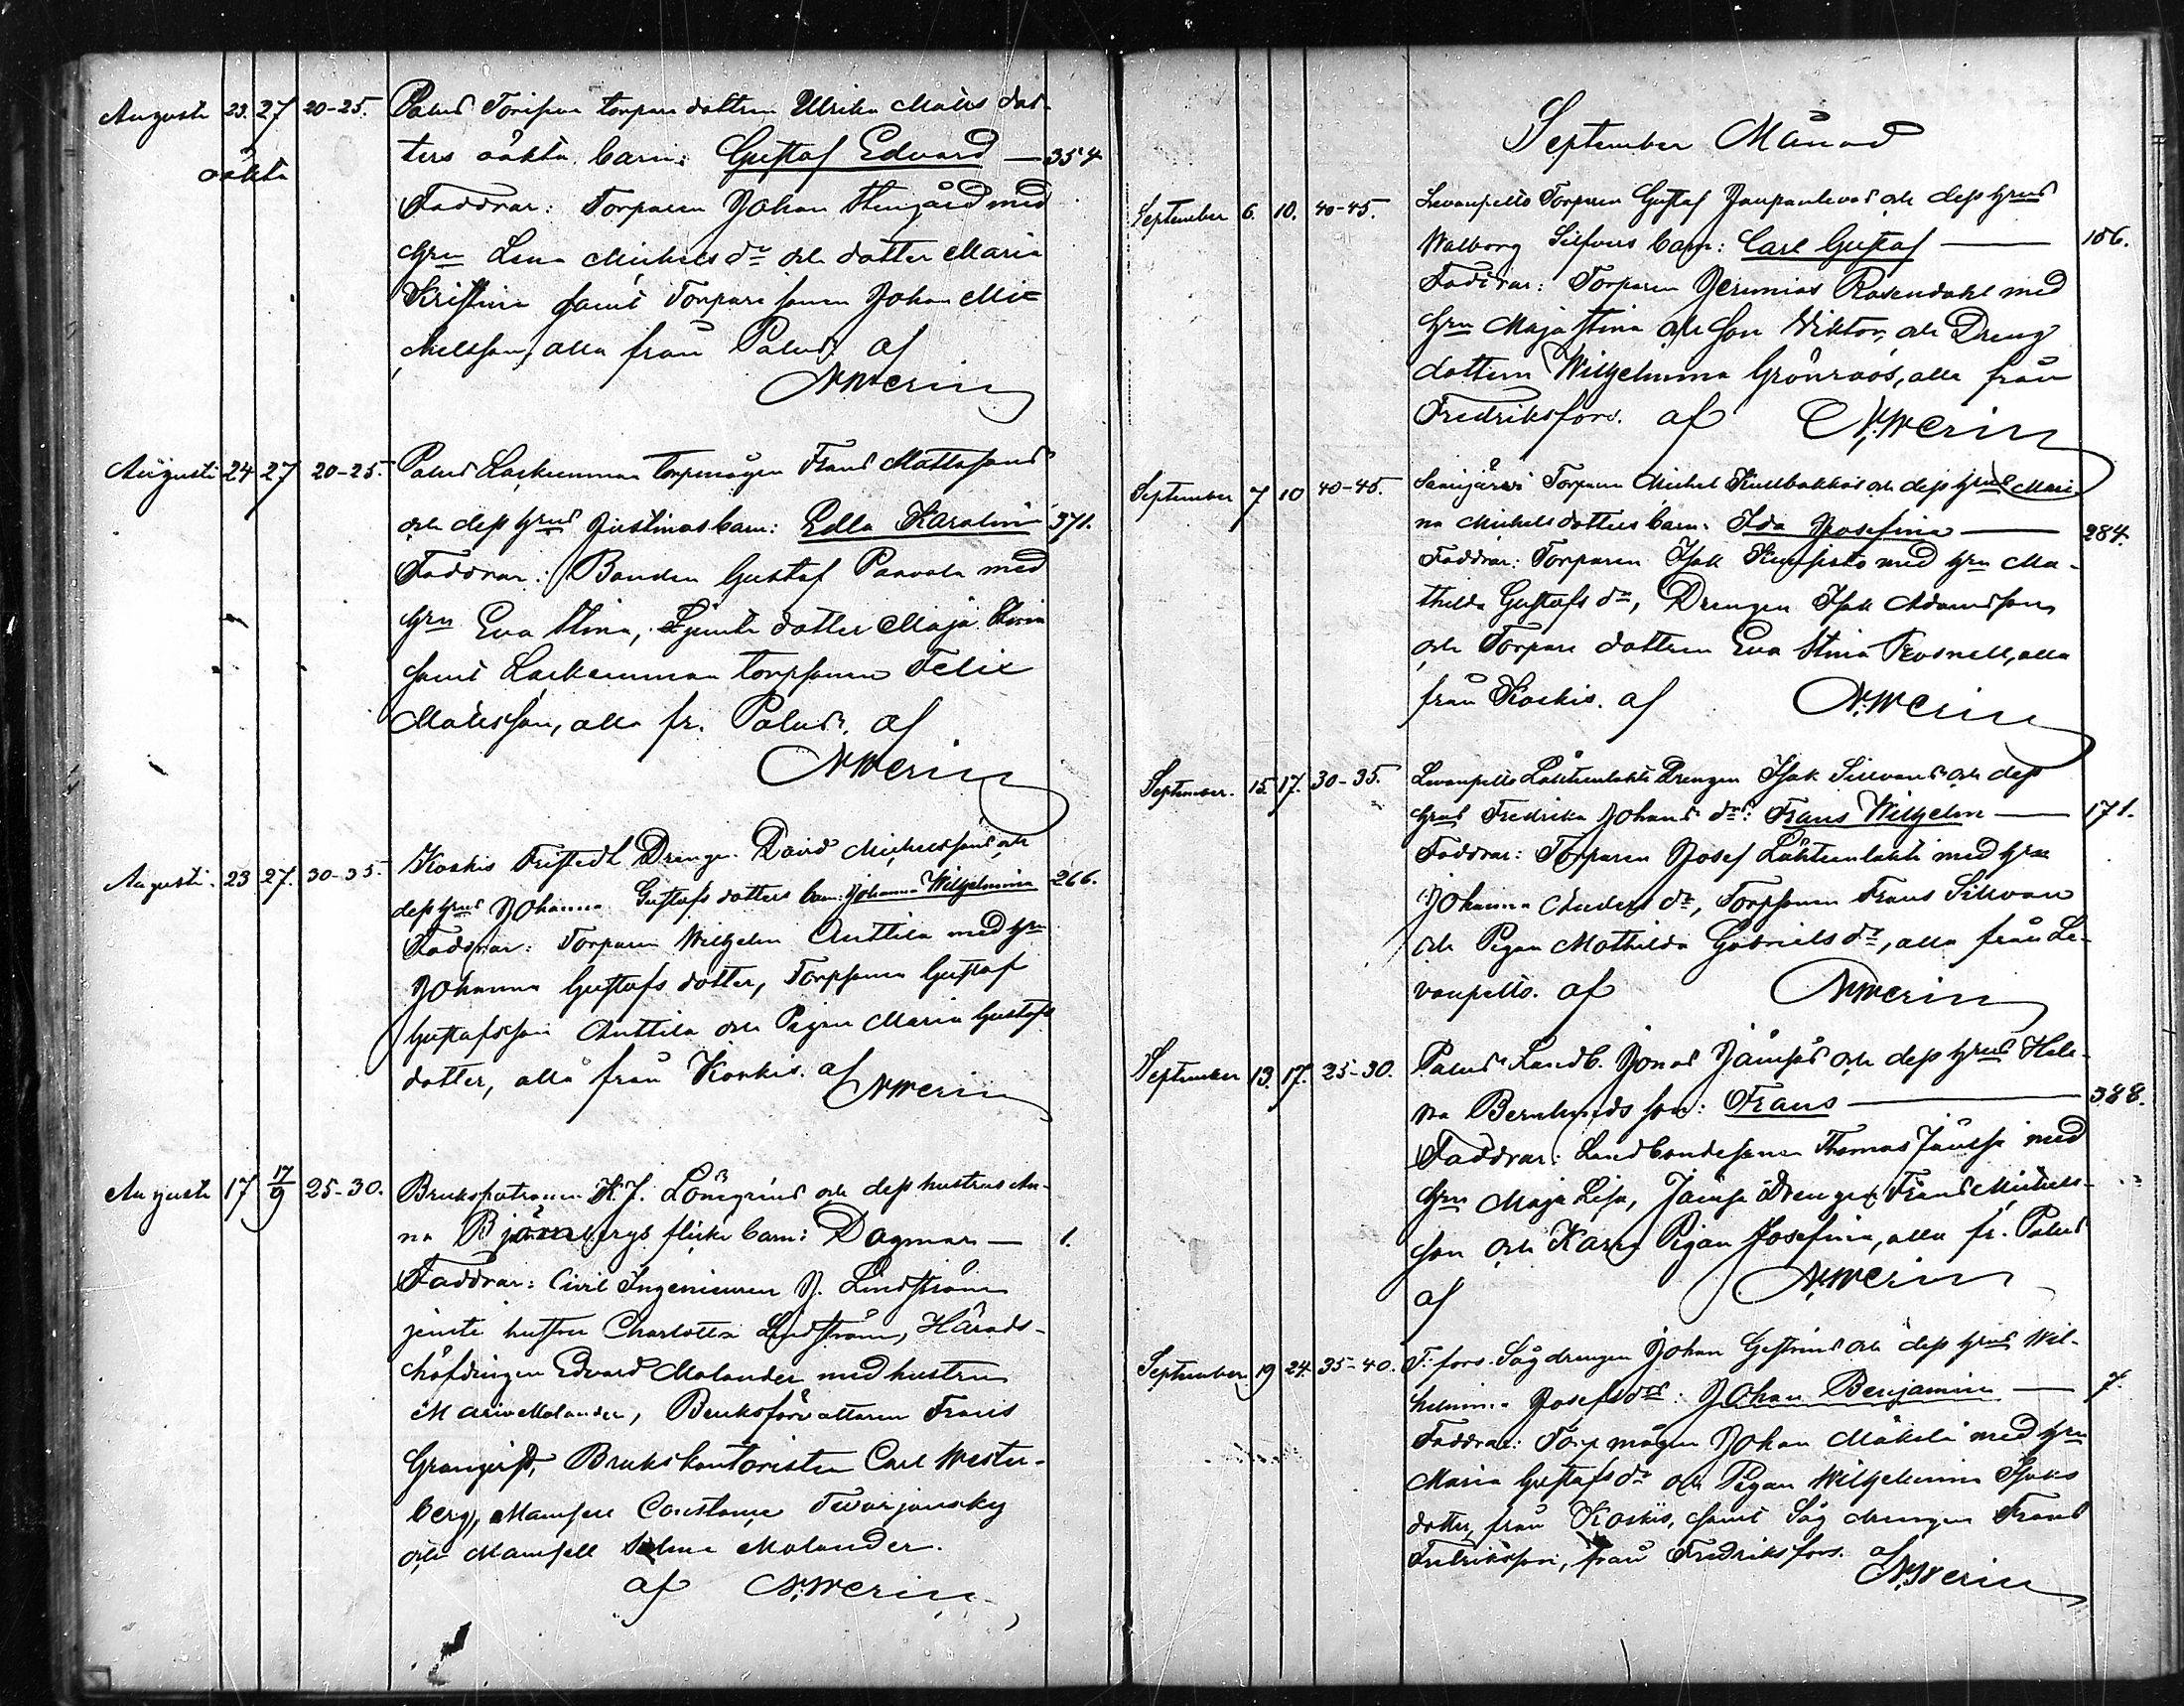 Augusti 23. 27 20-25. Palus torpare dottren Ulrika Matts dot-
oäkta ters oäkta barn: Gustaf Edvard — 354
Faddrar: Torparen Johan Stengård med
hru Lena Michels dr och dotter Maria
Kristina samt Torpare sonen Johan Mi=
chelsson, alla från Palus. af
N. Werin
Augusti 24 27 20-25. Palus Laskeinman torpmågen Frans Mattssons
och dess hrus Justinas barn: Edla Karolina 371.
Faddrar: Bonden Gustaf Paavola med
hru Eva Stina, dotter Maja Stina
samt Laskeinman torpsonen Felix
Mattsson, alla fr. Palus. af
N Werin
Augusti. 23 27. 30-35. Koskis Fristedt Drängen David Michelssons och
dess hrus Johanna Gustafs dotters barn: Johanna Wilhelmina 266.
Faddrar: Torparen Wilhelm Anttila med hru
Johanna Gustafs dotter, Torpsonen Gustaf
Gustafsson Anttila och Pigan Maria Gustafs
dotter, alla från Koskis. af
N Werin
Augusti 17 17/9 25-30. Brukspatronen K. J. Lönegrens och dess hustrus An-
na Björnebergs flicke barn: Dagmar — 1.
Faddrar: Civil Ingenieuren J. Lindström
jemte hustru Charlotta Lindström, Härads-
höfdingen Edvard Molander med hustru
Maria Molander, Bruksförvaltaren Frans
Granqvist, Brukskontoristen Carl Wester-
berg, Mamsell Constance Twarjansky
och Mamsell Selma Molander.
af N. Werin
September Månad
September 6. 10. 40-45. Levanpelto Torparen Gustaf och dess hrus
Walborg Silfvers barn: Carl Gustaf — 106.
Faddrar: Torparen Jeremias Rosendahl med
hru Maja Stina och Son Viktor, och Dreng
dottern Wilhelmina Grönroos, alla från
Fredriksfors. af N. Werin
September 7 10 40-45. Saarijärvi Torparen Michel Kullbakkas och dess hrus Mari-
na Michelsdotters barn. Ida Josefina — 284.
Faddrar: Torparen Isak med hru Ma-
thilda Gustafs dr, Drengen Isak Adamsson
och Torpare dottren Eva Stina Rosnell, alla
från Koskis. af N. Werin
September. 15. 17. 30-35. Levanpelto Lähteenlahti Drengen Isak Sillvans och dess
hrus Fredrika Johans drs: Frans Wilhelm — 171.
Faddrar: Torparen Josef Lähteenlahti med hru
Johanna Anders dr, Torpsonen Frans Sillvan
och Pigan Mathilda Gabriels dr, alla från Le-
vanpelto. af N. Werin
September 13. 17. 25-30. Palus Landb. Jonas Jämsäs och dess hrus Hele-
na Bernhards son: Frans — 388.
Faddrar: Landbondesonen Thomas Jämsä med
hru Maja Lisa, Jämsä Drengen Frans Michels-
son och Karra Pigan Josefina, alla fr. Palus
af N. Werin
September 19 24. 35-40. F:fors. Sågdrengen Johan Gestrins och dess hrus Wil-
helmina Josefs drs: Johan Benjamin — 7.
Faddrar: Torpmågen Johan Mäkelä med hru
Maria Gustafs dr och Pigan Wilhelmina Isaks
dotter, från Koskis, samt Såg drengen Frans
Fredriksson, från Fredriksfors. af
N. Werin